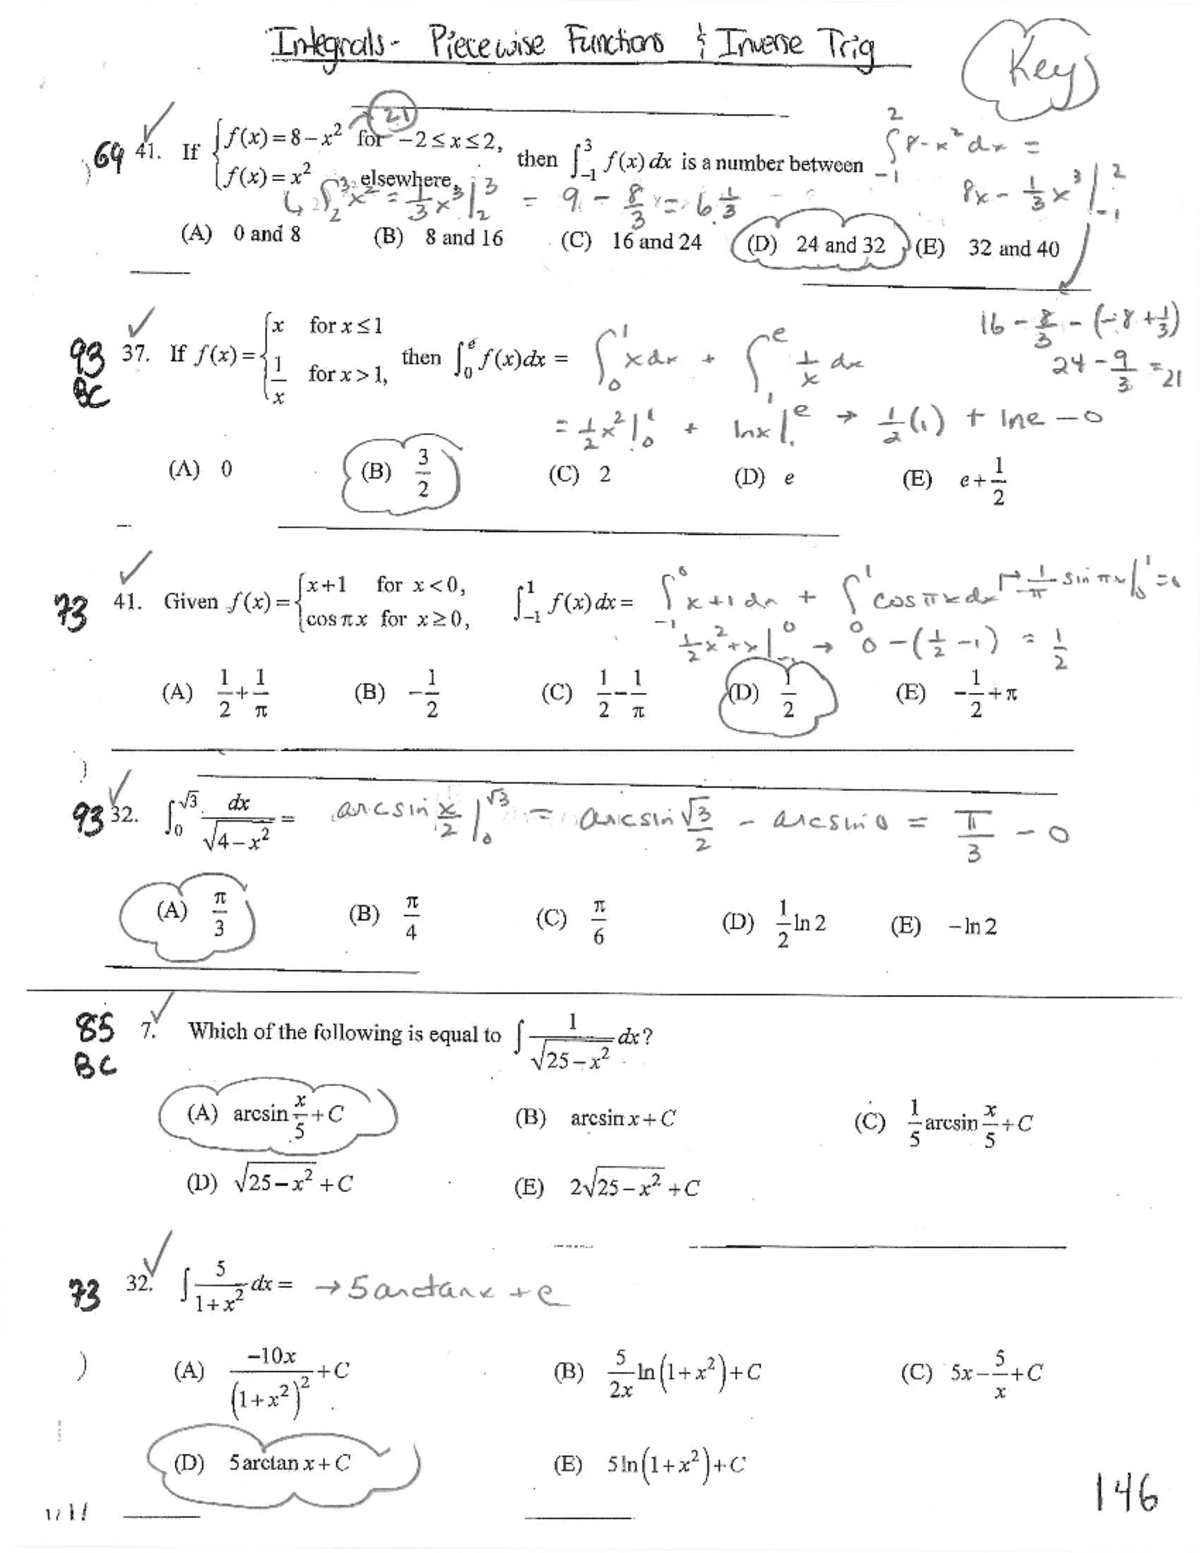 Integrals - Piecewise Functions & Inverse Trig
Key
69 41. If { f(x) = 8 − x² for −2 ≤ x ≤ 2, f(x) = x² elsewhere, then ∫_{-1}^{3} f(x) dx is a number between
21
∫_{-1}^{2} 8 - x² dx =
8x - 1/3 x³ |_{-1}^{2}
↳ ∫_{2}^{3} x² = 1/3 x³ |_{2}^{3} = 9 - 8/3 = 6 1/3
(A) 0 and 8 (B) 8 and 16 (C) 16 and 24 (D) 24 and 32 (E) 32 and 40
16 - 8/3 - (-8 + 1/3)
24 - 9/3 = 21
93 BC 37. If f(x) = { x for x ≤ 1, 1/x for x > 1, then ∫_{0}^{e} f(x)dx = ∫_{0}^{1} x dx + ∫_{1}^{e} 1/x dx
= 1/2 x² |_{0}^{1} + ln x |_{1}^{e} → 1/2 (1) + ln e - 0
(A) 0 (B) 3/2 (C) 2 (D) e (E) e + 1/2
73 41. Given f(x) = { x+1 for x < 0, cos πx for x ≥ 0, ∫_{-1}^{1} f(x) dx = ∫_{-1}^{0} x+1 dx + ∫_{0}^{1} cos πx dx → 1/π sin πx |_{0}^{1} = 0
1/2 x² + x |_{-1}^{0} → 0 - (1/2 - 1) = 1/2
(A) 1/2 + 1/π (B) −1/2 (C) 1/2 − 1/π (D) 1/2 (E) −1/2 + π
93 32. ∫_{0}^{√3} dx/√(4−x²) = arcsin x/2 |_{0}^{√3} = arcsin √3/2 - arcsin 0 = π/3 - 0
(A) π/3 (B) π/4 (C) π/6 (D) 1/2 ln 2 (E) −ln 2
85 BC 7. Which of the following is equal to ∫ 1/√(25−x²) dx?
(A) arcsin x/5 + C (B) arcsin x + C (C) 1/5 arcsin x/5 + C
(D) √(25−x²) + C (E) 2√(25−x²) + C
73 32. ∫ 5/(1+x²) dx = → 5 arctan x + c
(A) −10x/(1+x²)² + C (B) 5/2x ln(1+x²) + C (C) 5x − 5/x + C
(D) 5 arctan x + C (E) 5 ln(1+x²) + C
146